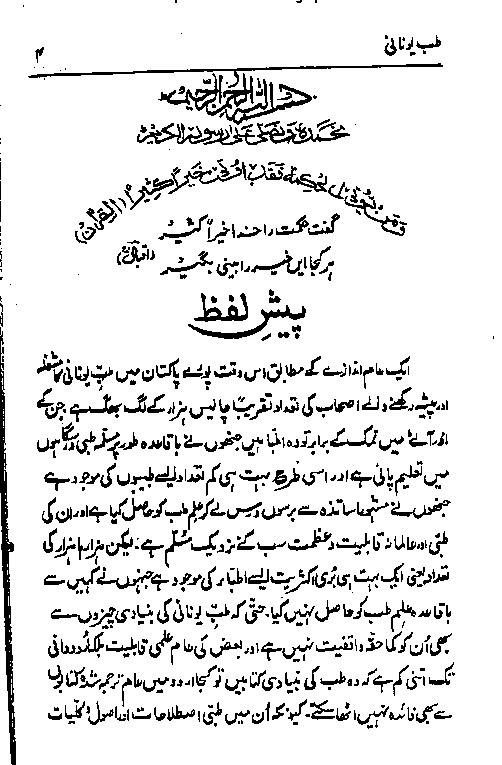 طب یونانی ۴
بسم اللہ الرحمن الرحیم
نحمدہ و نصلی علی رسولہ الکریم
و من یؤتی الحکمۃ فقد اوتی خیراً کثیراً (القرآن)
گفت حکمت را خدا خیراً کثیر
ہر کجا ایں خیر را بینی بگیر (اقبالؒ)
پیش لفظ
ایک عام اندازے کے مطابق اس وقت پورے پاکستان میں طب یونانی کا مشغلہ
اور پیشہ رکھنے والے اصحاب کی تعداد تقریباً چالیس ہزار کے لگ بھگ ہے جن کے
اندر آٹے میں نمک کے برابر تو وہ اطبا ہیں جنھوں نے باقاعدہ طور پر مسلمہ طبی درسگاہوں
میں تعلیم پائی ہے اور اسی طرح بہت ہی کم تعداد ایسے طبیبوں کی موجود ہے
جنھوں نے مستند اساتذہ سے برسوں درس لے کر علم طب کو حاصل کیا ہے اور ان کی
طبی اور عالمانہ قابلیت و عظمت سب کے نزدیک مسلم ہے۔ لیکن ہزارہا ہزار کی
تعداد یعنی ایک بہت ہی بڑی اکثریت ایسے اطباء کی موجود ہے جنہوں نے کہیں سے
باقاعدہ علم طب کو حاصل نہیں کیا۔ حتیٰ کہ طب یونانی کی بنیادی چیزوں سے
بھی اُن کو کما حقہ واقفیت نہیں ہے اور بعض کی عام علمی قابلیت بلکہ اُردو دانی
تک اتنی کم ہے کہ وہ طب کی بنیادی کتابیں تو کجا اردو میں عام ترجمہ شدہ کتابوں
سے بھی فائدہ نہیں اٹھا سکتے۔ کیونکہ اُن میں طبی اصطلاحات اور اصول و کلیات